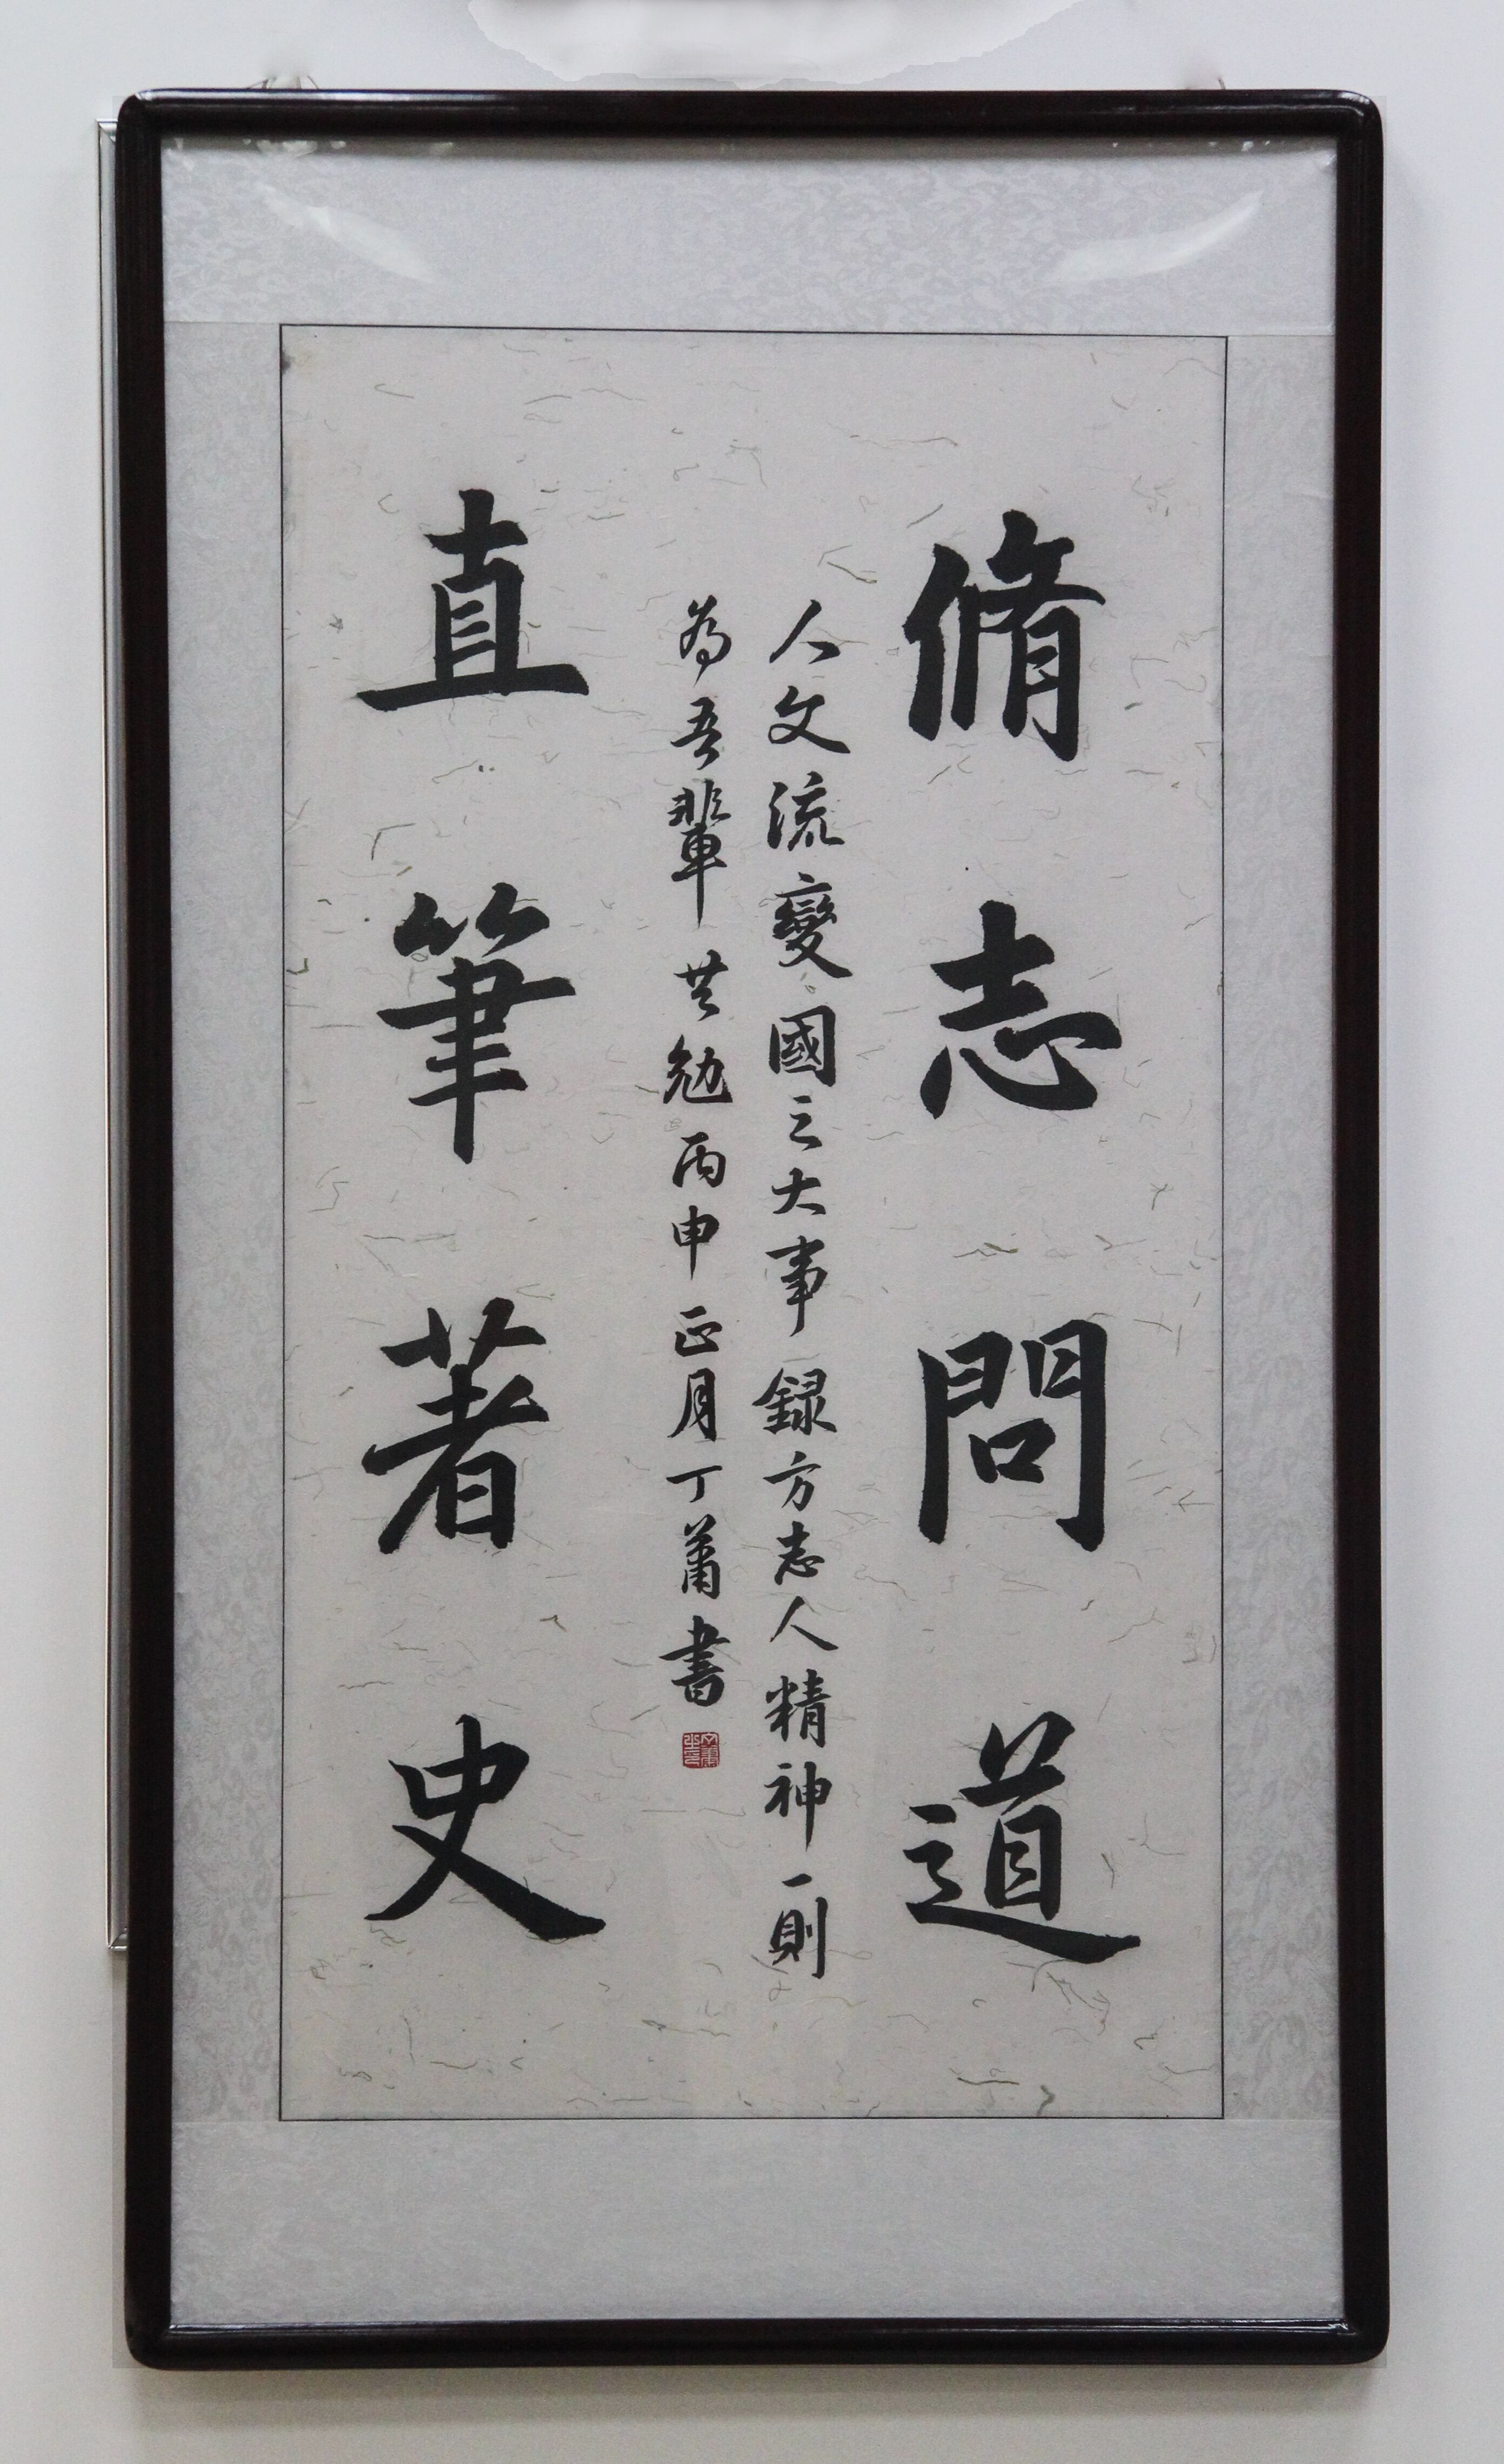 脩志問道
人文流變國之大事録方志人精神一則
為吾輩共勉丙申正月丁蕭書
直筆著史